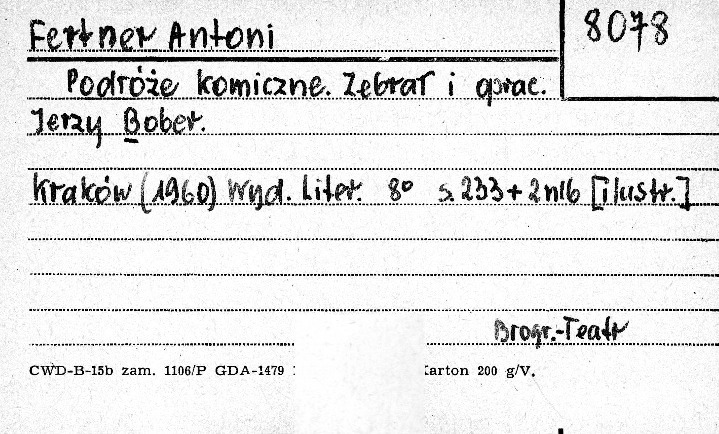 Fertner Antoni
8078
Podróże komiczne. Zebrał i oprac.
Jerzy Bober.
Kraków (1960) Wyd. Liter. 8° s. 233 + 2 nlb [ilustr.]
Biogr.-Teatr
CWD-B-15b zam. 1106/P GDA-1479 :arton 200 g/V.